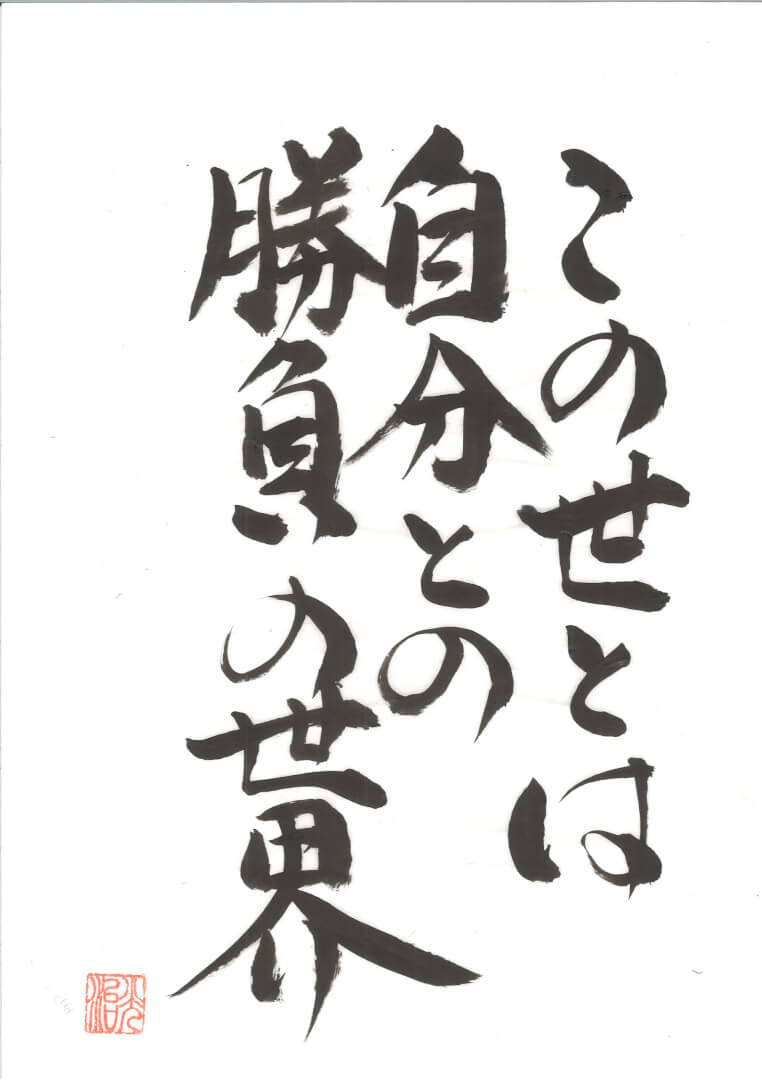 この世とは
自分との
勝負の世界